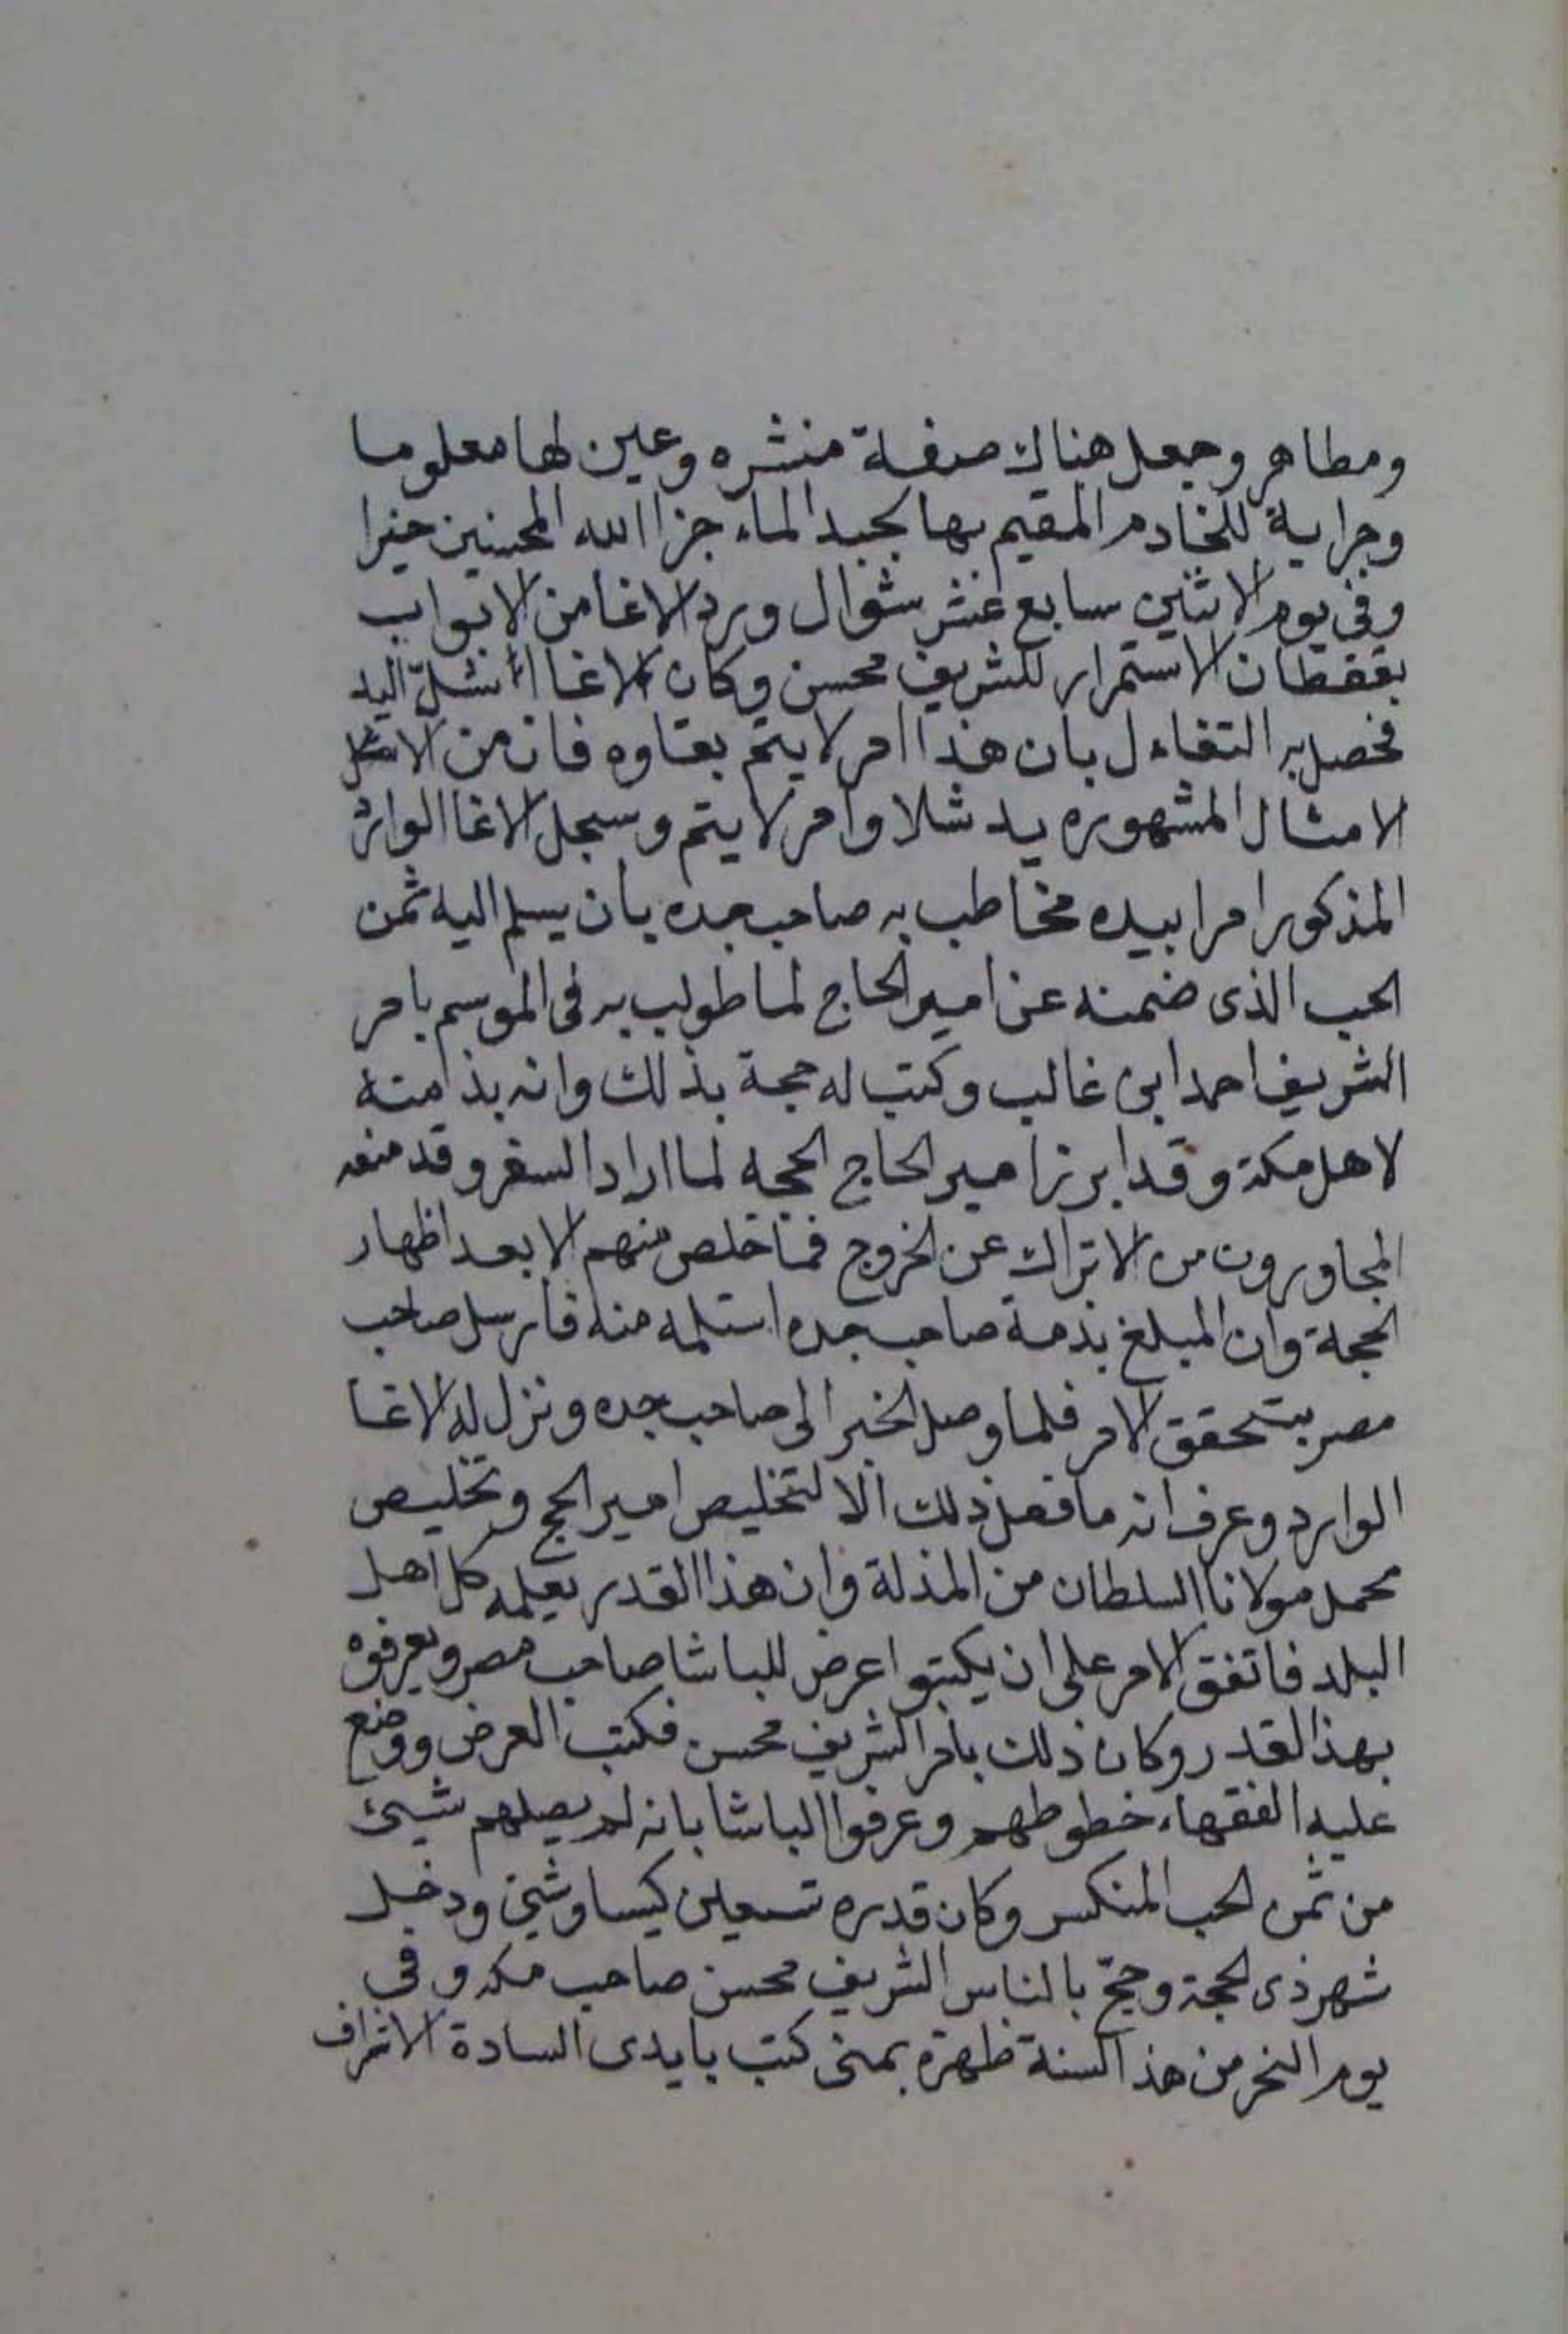 ومطاهر وجعل هناك صفة منشره وعين لها معلوما
وجراية للخادم المقيم بها لجبد الماء جزا الله المحسنين خيرا
وفي يوم الاثنين سابع عشر شوال ورد الاغا من الابواب
بقفطان الاستمرار للشريف محسن وكان الاغا اشل اليد
فحصل به التفاءل بان هذا امر لا يتم بقاوه فان من
الامثال المشهوره يد شلا وامر لا يتم وسجل الاغا الوارد
المذكور امرا بيده مخاطب به صاحب جده بان يسلم اليه ثمن
الحب الذى ضمنه عن امير الحاج لما طولب به فى الموسم بامر
الشريف احمد ابن غالب وكتب له حجة بذلك وانه بذامته
لاهل مكة وقد ابرز امير الحاج الحجه لما اراد السفر وقد منعه
المجاورون من الاتراك عن الخروج فما خلص منهم الا بعد اظهار
الحجة وان المبلغ بذمة صاحب جده استلمه منه فارسل صاحب
مصر بتحقق الامر فلما وصل الخبر الى صاحب جده ونزل له الاغا
الوارد وعرف انه ما فعل ذلك الا لتخليص امير الحج وتخليص
محمل مولانا السلطان من المذلة وان هذا القدر يعلمه كل اهل
البلد فاتفق الامر على ان يكتبوا عرض للباشا صاحب مصر ويعرفوه
بهذ القدر وكان ذلك بامر الشريف محسن فكتب العرض ووضع
عليه الفقهاء خطوطهم وعرفوا الباشا بانه لم يصلهم شيئ
من ثمن الحب المنكسر وكان قدره تسعين كيسا وشئ ودخل
شهر ذى الحجة وحج بالناس الشريف محسن صاحب مكه وفى
يوم النحر من هذ السنة ظهرة بمنى كتب بايدى السادة الاشراف